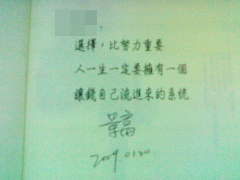 :
選擇，比努力重要
人一生一定要擁有一個
讓錢自己流進來的系統
景高
2009 0120